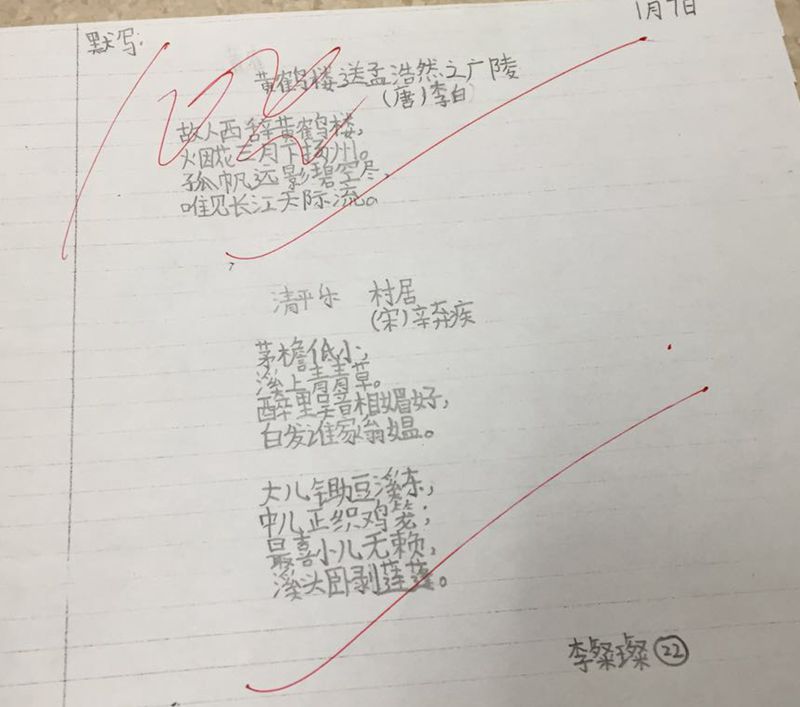 1月7日
默写:
黄鹤楼送孟浩然之广陵
(唐)李白
故人西辞黄鹤楼,
烟花三月下扬州。
孤帆远影碧空尽,
唯见长江天际流。
清平乐 村居
(宋)辛弃疾
茅檐低小,
溪上青青草。
醉里吴音相媚好,
白发谁家翁媪。
大儿锄豆溪东,
中儿正织鸡笼;
最喜小儿无赖,
溪头卧剥莲蓬。
李粲璨 22